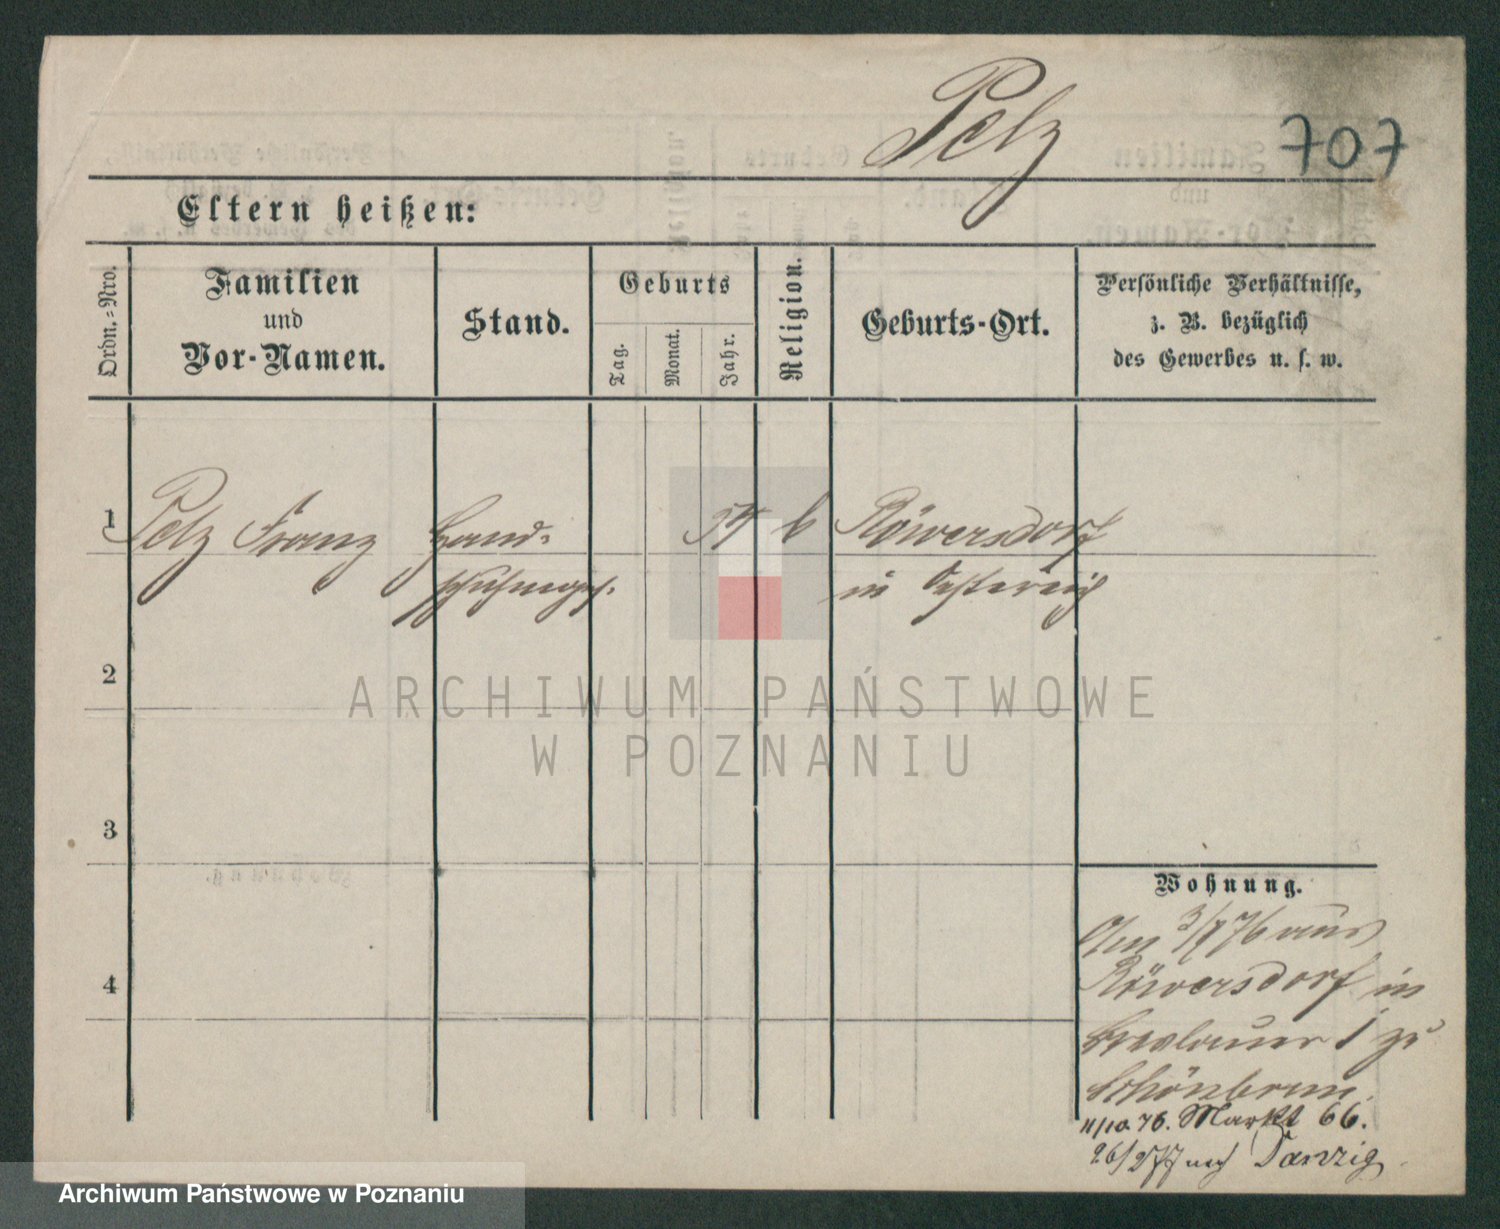 Pelz
707
Eltern heißen:
Ordn.-Nro.
Familien
und
Vor-Namen.
Stand.
Geburts
Tag.
Monat.
Jahr.
Religion.
Geburts-Ort.
Persönliche Verhältnisse,
z. B. bezüglich
des Gewerbes u. s. w.
1 Pelz Franz Hand- 54 k Röwersdorf
schuhmach. in Östereich
2
3
4
Wohnung.
Am 3/ 76 aus
Röwersdorf in
Breslauer 1 zu
Schönbrun.
11/10. 76. Markt 66.
26/2 77 nach Danzig.
ARCHIWUM PAŃSTWOWE
W POZNANIU
Archiwum Państwowe w Poznaniu